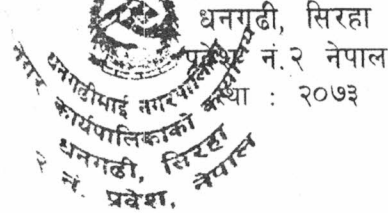 धनगढी, सिरहा
प्रदेश नं.२ नेपाल
स्था : २०७३
धनगढीमाई नगरपालिका
नगर कार्यपालिकाको कार्यालय
धनगढी, सिरहा
२ नं. प्रदेश, नेपाल